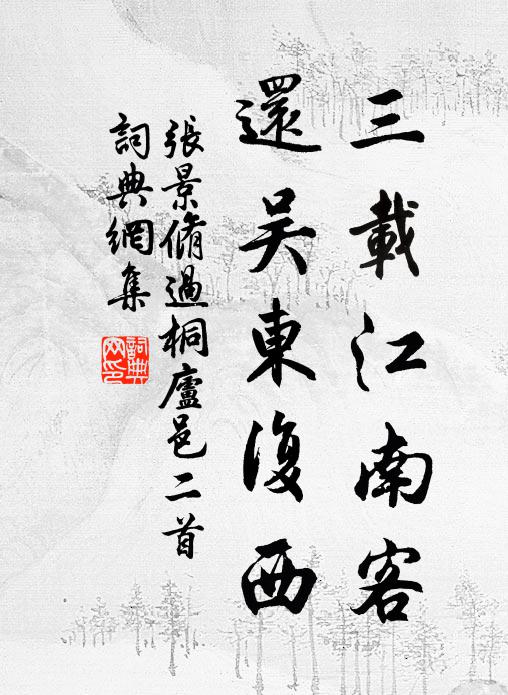 三載江南客
還吴東復西
張景脩過桐廬邑二首
詞典網集
詞典
网印